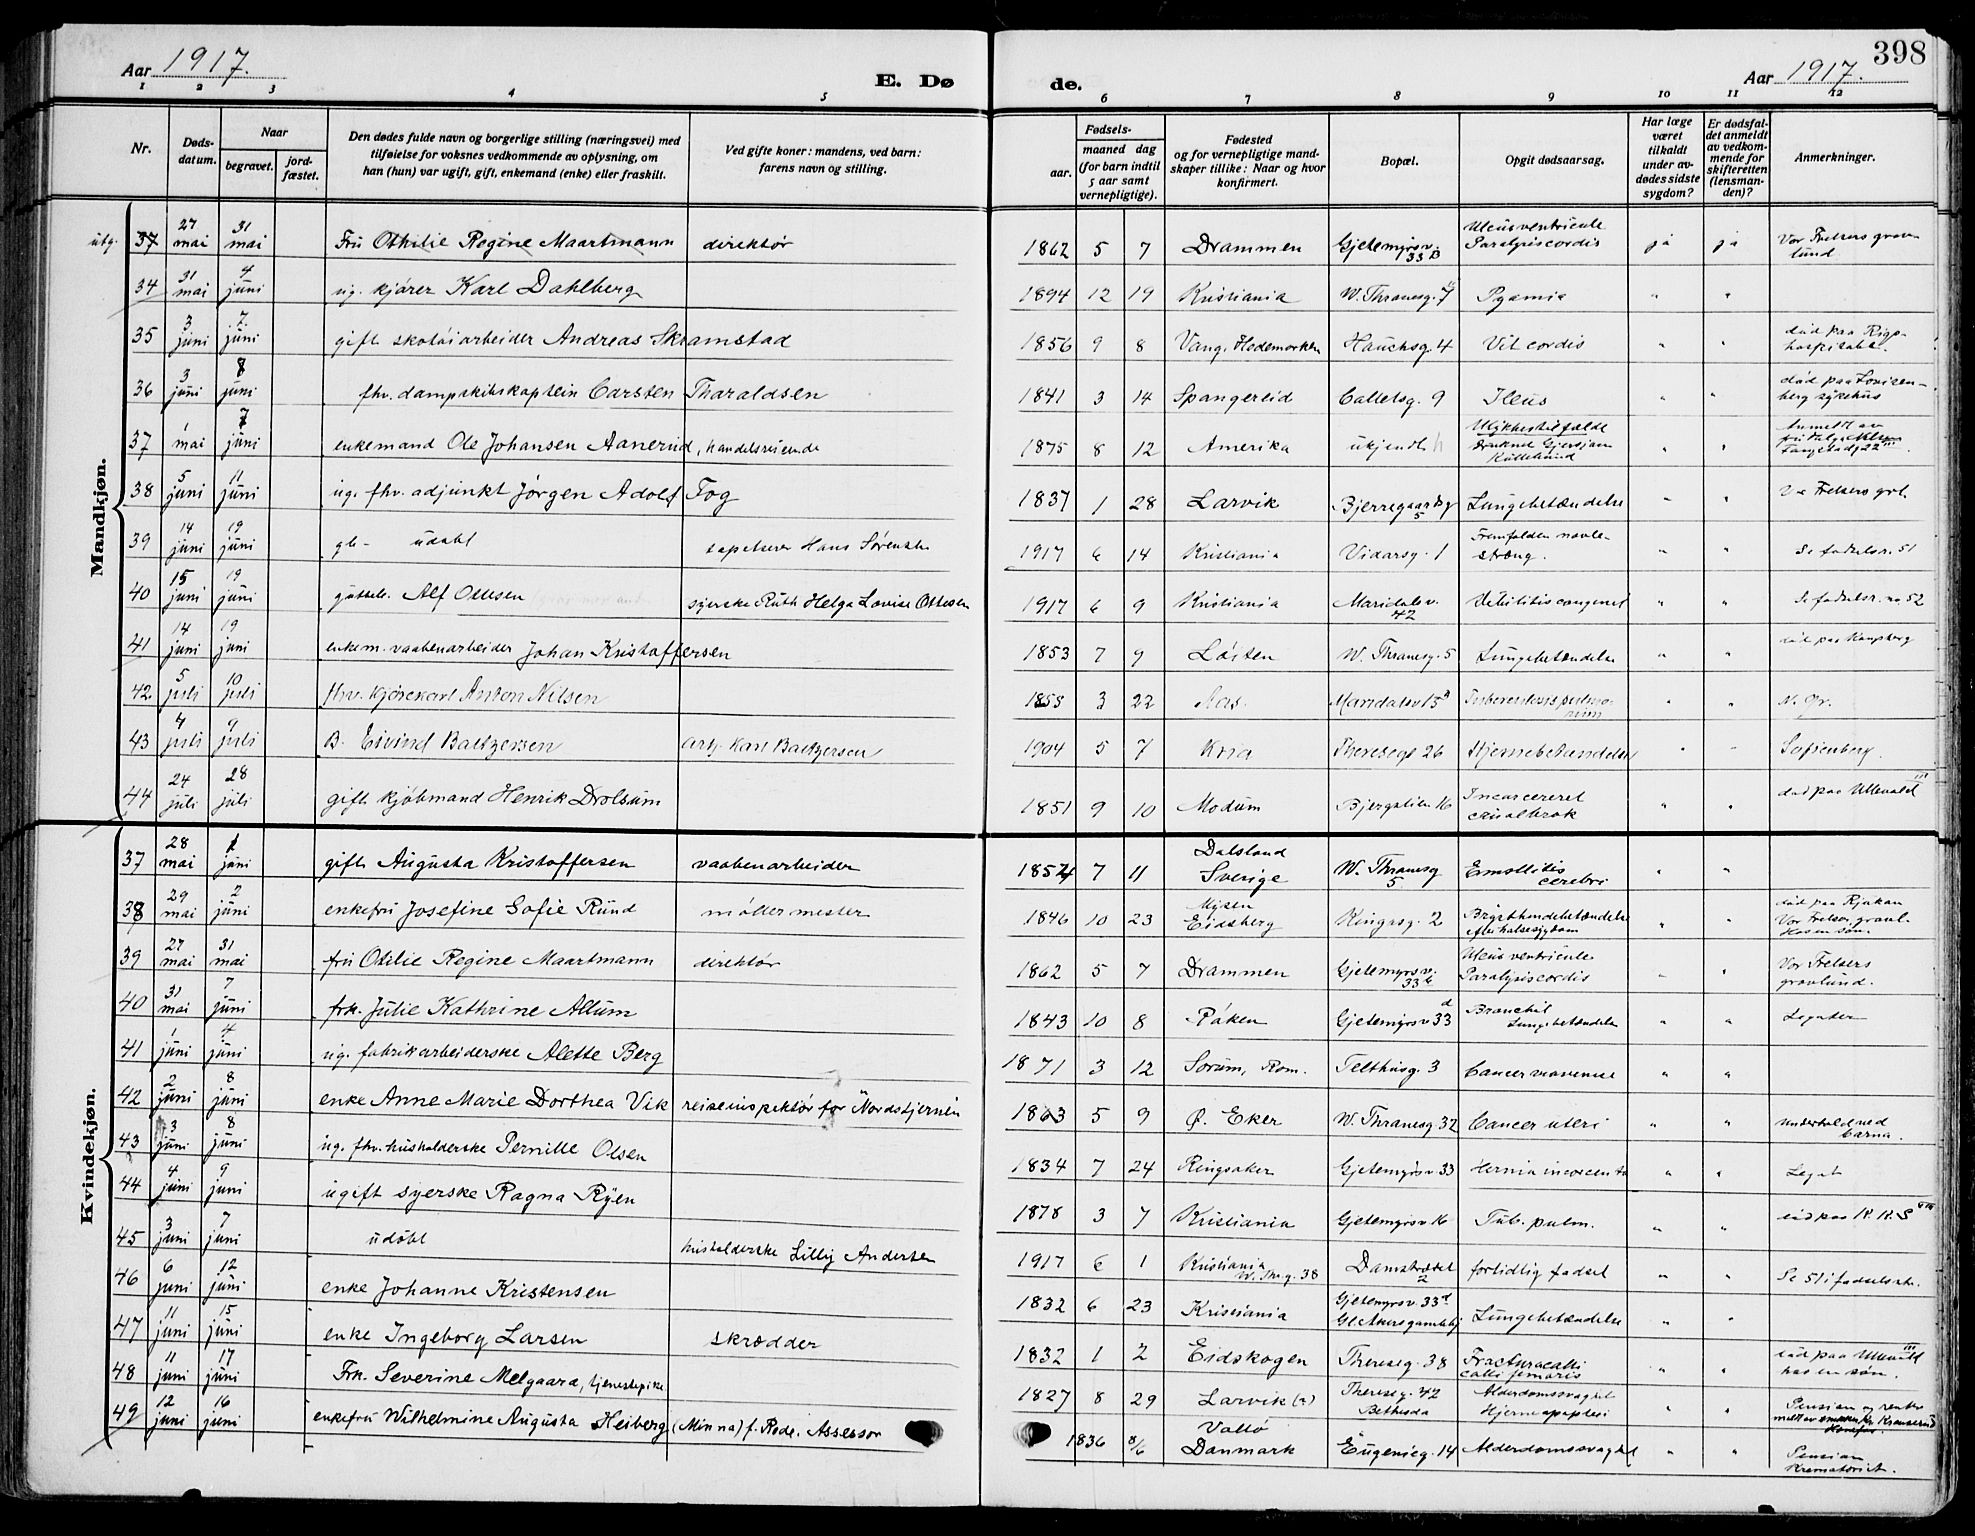 Aar 1917.
E. Dø
de.
398
Aar 1917.
1 2 3 4 5 6 7 8 9 10 11 12
Nr.
Dødsdatum.
Naar
begravet.
jordfæstet.
Den dødes fulde navn og borgerlige stilling (næringsvei) med
tilføielse for voksnes vedkommende av oplysning, om
han (hun) var ugift, gift, enkemand (enke) eller fraskilt.
Ved gifte koner: mandens, ved barn:
farens navn og stilling.
Fødsels-
aar.
maaned dag
(for barn indtil
5 aar samt
vernepligtige).
Fødested
og for vernepligtige mand-
skaper tillike: Naar og hvor
konfirmert.
Bopæl.
Opgit dødsaarsag.
Har læge
været
tilkaldt
under av-
dødes sidste
sygdom?
Er dødsfal-
det anmeldt
av vedkom-
mende for
skifteretten
(lensman-
den)?
Anmerkninger.
Mandkjøn.
utg. 37 27 mai 31 mai Fru Othilie Regine Maartmann direktør 1862 5 7 Drammen Gjetemyrsv. 33 B Ulcus ventricule Paralysis cordis ja ja Vor Frelsers gravlund
34 31 mai 4 juni ug. kjører Karl Dahlberg 1894 12 19 Kristiania W. Thranesg. 7 Pyamia " "
35 3 juni 7. juni gift skotøiarbeider Andreas Skramstad 1856 9 8 Vang, Hedemarken Hauchsg. 4 Vit cordis " " død paa Rigshospitalet.
36 3 juni 8 juni fhv. dampskibskaptein Carsten Tharaldsen 1841 3 14 Spangereid Colletsg. 9 Ileus " " død paa Lovisenberg sykehus
37 1 mai 7 juni enkemand Ole Johansen Aanerud, handelsreisende 1875 8 12 Amerika ukjendt Ulykkestilfælde Druknet Gjersjøen " " Anmeldt av
38 5 juni 11 juni ug. fhv. adjunkt Jørgen Adolf Fog 1837 1 28 Larvik Bjerregaardsg 5 Lungebetændelse " " Vor Frelsers grl.
39 14 juni 19 juni gb- udøbt tapetserer Hans Sørensen 1917 6 14 Kristiania Vidarsg. 1 Fremfalden navlestræng. " " Se fødselsr. 51
40 15 juni 19 juni gutteb. Alf Ottesen syerske Ruth Helga Lovise Ottesen 1917 6 9 Kristiania Maridalsv. 42 Debilitis congenit " " Se fødselsr. no. 52
41 14 juni 19 juni enkem. vaabenarbeider Johan Kristoffersen 1853 7 9 Løiten W. Thranesg. 5 Lungebetændelse " " død paa Kongsberg
42 5 juli 10 juli fhv. kjørekarl Anton Nilsen 1855 3 22 Aas. Maridalsv 15 Tuberculosis pulmonum " " N. Gr.
43 4 juli 9 juli B. Eivind Baltzersen Arb. Karl Baltzersen 1904 5 7 Kria Theresesgt 26 Hjernebetændelse " " Sofienberg.
44 24 juli 28 juli gift kjøbmand Henrik Drolsum 1851 9 10 Modum Bjergalien 16 Incarcereret cruralbrok " " død paa Ullevaal
Kvindekjøn.
37 28 mai 1 juni gift Augusta Kristoffersen vaabenarbeider 1852 7 11 Dalsland Sverige W. Thranesg 5 Emollitis cerebri " "
38 29 mai 2 juni enkefru Josefine Sofie Rund møllermester 1846 10 23 Mysen Eidsberg Kingosg. 2 Brysthindebetændelse " " død paa Rjukan Vor Frelsers gravl. Hos en søn.
39 27 mai 31 mai fru Otilie Regine Maartmann direktør 1862 5 7 Drammen Gjetemyrsv. 33 Ulcus ventricule Paralysis cordis " " Vor Frelsers gravlund.
40 31 mai 7 juni frk. Julie Kathrine Allum 1843 10 8 Røken Gjetemyrsv 33 d Bronchit Lungebetændelse " " Legater
41 1 juni 4 juni ug. fabrikarbeiderske Alette Berg 1871 3 12 Sørum, Rom. Telthusg. 3 Cancer " "
42 2 juni 8 juni enke Anne Marie Dorthea Vik reiseinspektør for "Nordstjernen 1863 5 9 Ø. Eker W. Thranesg 32 Cancer uteri " " underhold ved barna.
43 3 juni 8 juni ug. fhv. husholderske Pernille Olsen 1834 7 24 Ringsaker Gjetemyrsv. 33 Hernia " " Legat
44 4 juni 9 juni ugift syerske Ragna Ryen 1878 3 7 Kristiania Gjetemyrsv 16 Tub. pulm. " " død paa K. K. S
45 3 juni 7 juni udøbt husholderske Lilly Andersen 1917 6 1 Kristiania W. Th. g. 38 Damstrædet 2 fortidlig fødsel " " Se 51 i fødselsr.
46 6 juni 12 juni enke Johanne Kristensen 1832 6 23 Kristiania Gjetemyrsv. 33 Gl. Akers gamlehj Lungebetændelse " "
47 11 juni 15 juni enke Ingeborg Larsen skrædder 1832 1 2 Eidskogen Theresesg. 38 Fractura colli femoris " " død paa Ullevaal hos en søn.
48 11 juni 17 juni Frk. Severine Melgaard, tjenestepike 1827 8 29 Larvik (?) Theresesg. 42 Bethesda Alderdomssvaghet Hjerneapoplexi " " Pension og renter
49 12 juni 16 juni enkefru Wilhelmine Augusta Heiberg (Minna) f. Rode. Assessor 1836 8/6 Vallø Danmark Eugeniesg. 14 Alderdomssvaghet " " Pension Krematoriet.